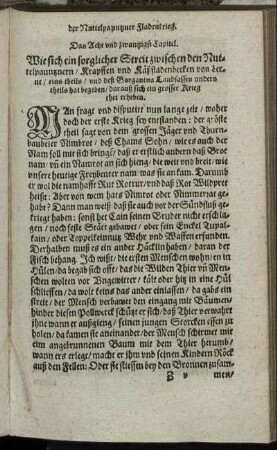 der Nuttelpaunzuer Fladenkrieg.
Das Acht und zwantzigst Capitel.
Wie sich ein sorglicher Streit zwischen den Nut-
telpaunznern / Krapffen und Käßfladenbecken von
ne / eins theils / und deß Gargantua Landsassen anders
theils hat begeben / darauß sich ein grosser Krieg
ther erheben.
MAn fragt und disputiert nun lange zeit / woher
doch der erste Krieg sey enstanden: der gröste
theil sagt von dem grossen Jäger und Thurn-
baubeier Nimbrot / deß Chams Sohn / wie es auch der
Nam soll mit sich bringē / daß er erstlich andern daß Brot
nam: vn̄ ein Namrot an sich hieng / die weit und breit / wie
unsere heutige Freybeuter nam was sie ankam. Darumb
er wol die namhafft Rut Rottur / und daß Rot Wildpret
heißt: Aber von wem hats Nimrot oder Nimmerrat ge-
habt? Dann man weißt daß sie auch vor der Sündfluß ge-
krieget haben: sonst het Cain seinen Bruder nicht erschla-
gen / noch feste Stätt gebawet / oder sein Enckel Tupal-
kain / oder Toppelkeinnutz Wehr und Waffen erfunden.
Derhalben muß es ein ander Häcklin haben / daran der
Fisch behang. Ich wißt / die ersten Menschen wohn / en in
Hülen / da begab sich offt / das die Wilden Thier vn̄ Men-
schen wolten vor Ungewitter / kält oder hitz in eine Hül
schlieffen / da wolt keins das ander einlassen / da gabs ein
streit / der Mensch verbawet den eingang mit Bäumen /
hinder diesen Pollwerck schützt er sich / daß Thier verwahrt
ihne wann er außgieng / seinen jungen Storcken essen zu
holen / da kamen sie aneinander / der Mensch schirmet mit
eim angebrunnenen Baum mit dem Thier herumb /
wann ers erlegt / macht er ihm und seinen Kindern Röck
auß den Fellen: Oder sie stiessen bey den Bronnen zusam-
men /